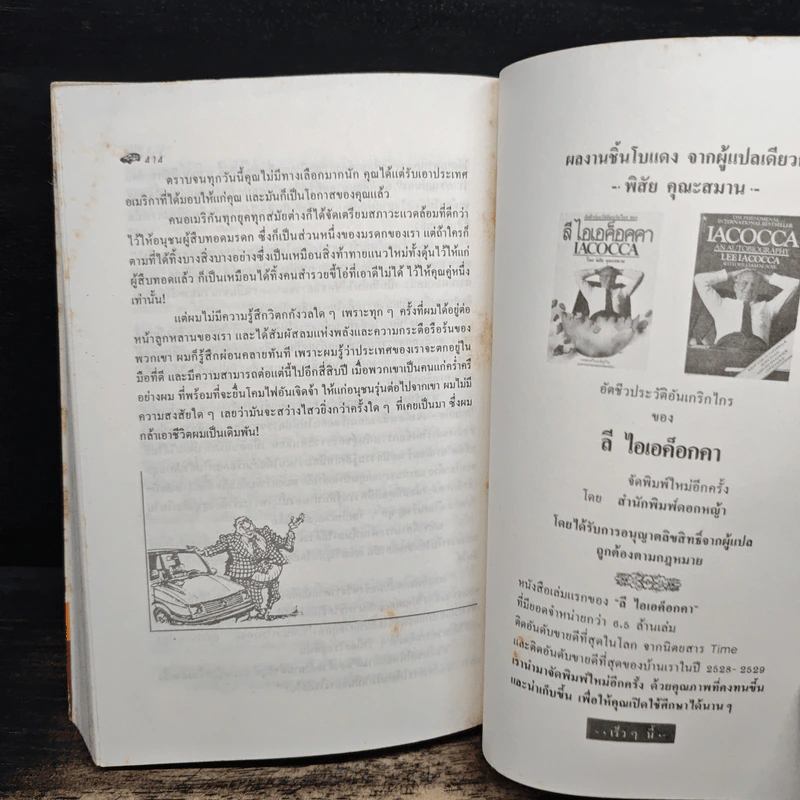 414
ตราบจนทุกวันนี้คุณไม่มีทางเลือกมากนัก คุณได้แต่รับเอาประเทศ
อเมริกาที่ได้มอบให้แก่คุณ และมันก็เป็นโอกาสของคุณแล้ว
คนอเมริกันทุกยุคทุกสมัยต่างก็ได้จัดเตรียมสภาวะแวดล้อมที่ดีกว่า
ไว้ให้อนุชนผู้สืบทอดมรดก ซึ่งก็เป็นส่วนหนึ่งของมรดกของเรา แต่ถ้าใครก็
ตามที่ได้ทิ้งบางสิ่งบางอย่างซึ่งเป็นเหมือนสิ่งท้าทายแนวใหม่ทิ้งคุ้นไว้ให้แก่
ผู้สืบทอดแล้ว ก็เป็นเหมือนได้ทิ้งคนสำรวยขี้โอ่ที่เอาดีไม่ได้ ไว้ให้คุณคู่หนึ่ง
เท่านั้น!
แต่ผมไม่มีความรู้สึกวิตกกังวลใด ๆ เพราะทุก ๆ ครั้งที่ผมได้อยู่ต่อ
หน้าลูกหลานของเรา และได้สัมผัสลมแห่งพลังและความกระตือรือร้นของ
พวกเขา ผมก็รู้สึกผ่อนคลายทันที เพราะผมรู้ว่าประเทศของเราจะตกอยู่ใน
มือที่ดี และมีความสามารถต่อแต่นี้ไปอีกสี่สิบปี เมื่อพวกเขาเป็นคนแก่คร่ำครึ
อย่างผม ที่พร้อมที่จะยื่นโคมไฟอันเจิดจ้า ให้แก่อนุชนรุ่นต่อไปจากเขา ผมไม่มี
ความสงสัยใด ๆ เลยว่ามันจะสว่างไสวยิ่งกว่าครั้งใด ๆ ที่เคยเป็นมา ซึ่งผม
กล้าเอาชีวิตผมเป็นเดิมพัน!
ผลงานชิ้นโบแดง จากผู้แปลเดียวก
-- พิสัย คุณะสมาน --
ลี ไอเอค็อคคา
IACOCCA
THE PHENOMENAL
INTERNATIONAL BESTSELLER
IACOCCA
AN AUTOBIOGRAPHY
LEE IACOCCA
อัตชีวประวัติอันเกริกไกร
ของ
ลี ไอเอค็อกคา
จัดพิมพ์ใหม่อีกครั้ง
โดย สำนักพิมพ์ดอกหญ้า
โดยได้รับการอนุญาตลิขสิทธิ์จากผู้แปล
ถูกต้องตามกฎหมาย
หนังสือเล่มแรกของ "ลี ไอเอค็อกคา"
ที่มียอดจำหน่ายกว่า 6.5 ล้านเล่ม
ติดอันดับขายดีที่สุดในโลก จากนิตยสาร Time
และติดอันดับขายดีที่สุดของบ้านเราในปี 2528-2529
เรานำมาจัดพิมพ์ใหม่อีกครั้ง ด้วยคุณภาพที่คงทนขึ้น
และน่าเก็บขึ้น เพื่อให้คุณเปิดใช้ศึกษาได้นาน ๆ
-- เร็ว ๆ นี้ --